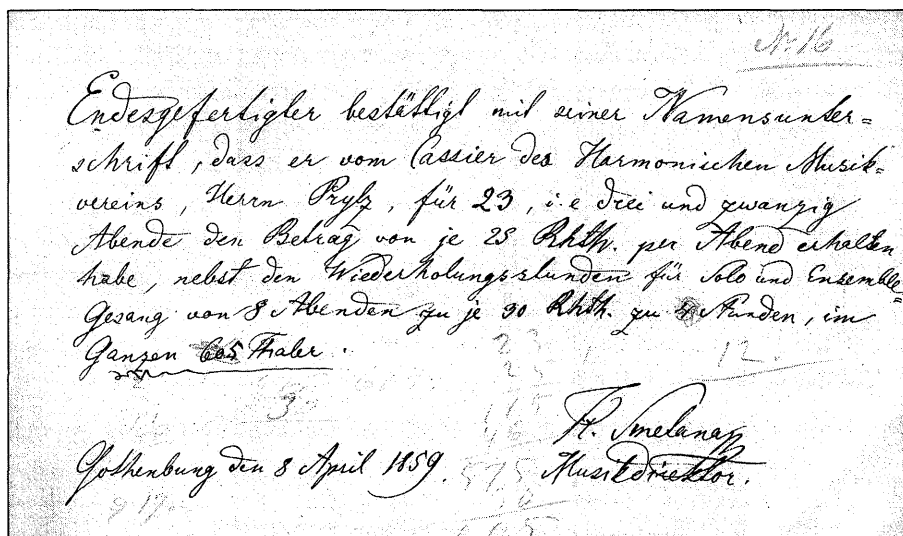 Nr. 16
Endesgefertigter bestättigt mit seiner Namensunter=
schrift, dass er vom Cassier des Harmonischen Musik=
vereins, Herrn Prytz, für 23, i.e drei und zwanzig
Abende den Betrag von je 25 Rhth. per Abend erhalten
habe, nebst den Wiederholungsstunden für Solo und Ensemble=
Gesang von 8 Abenden zu je 30 Rhth. zu Stunden, im
Ganzen 605 Thaler.
23
12.
25
3
115
46
Fr. Smetana
Gothenburg den 8 April 1859.
575
Musikdirektor.